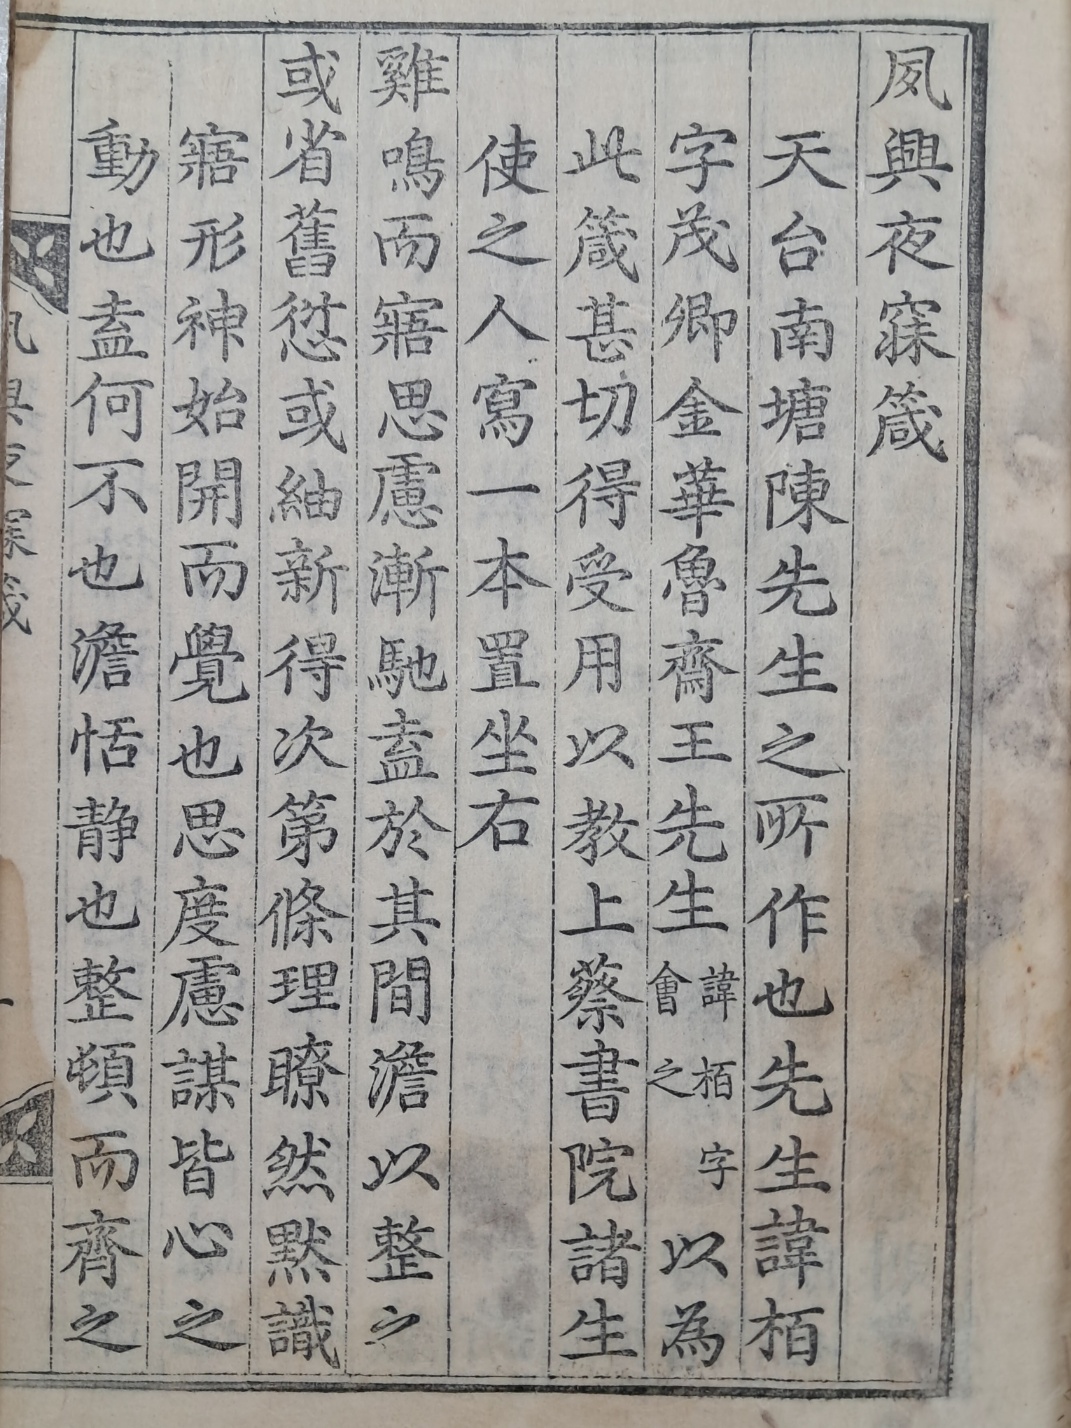 夙興夜寐箴
天台南塘陳先生之所作也先生諱栢
字茂卿金華魯齋王先生諱栢字會之以為
此箴甚切得受用以教上蔡書院諸生
使之人寫一本置坐右
雞鳴而寤思慮漸馳盍於其間澹以整之
或省舊愆或紬新得次第條理瞭然默識
寤形神始開而覺也思度慮謀皆心之
動也盍何不也澹恬静也整頓而齊之